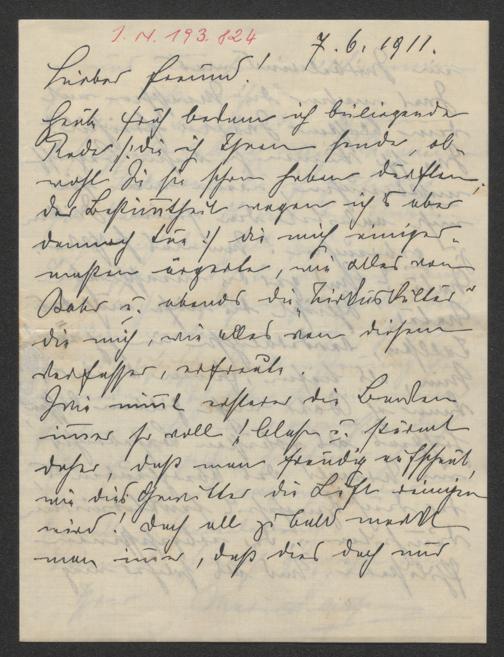 I. N. 193.824
7.6.1911.
Lieber Freund!
heute früh bekam ich beiliegende
Rede /: die ich Ihnen sende, ob-
wohl Sie sie schon haben dürften,
der Bestimmtheit wegen ich's aber
dennoch tue :/ die mich einiger-
maßen ärgerte, wie alles von
Bahr u. abends die "Zirkuskultur"
die mich, wie alles von diesem
Verfasser, erfreute.
Wie nimmt ersterer die Backen
immer so voll, blasen u. stürmt
daher, daß man freudig aufschaut,
wie dies Gewitter die Luft reinigen
wird! doch all zu bald merkt
man immer, daß dies doch nur